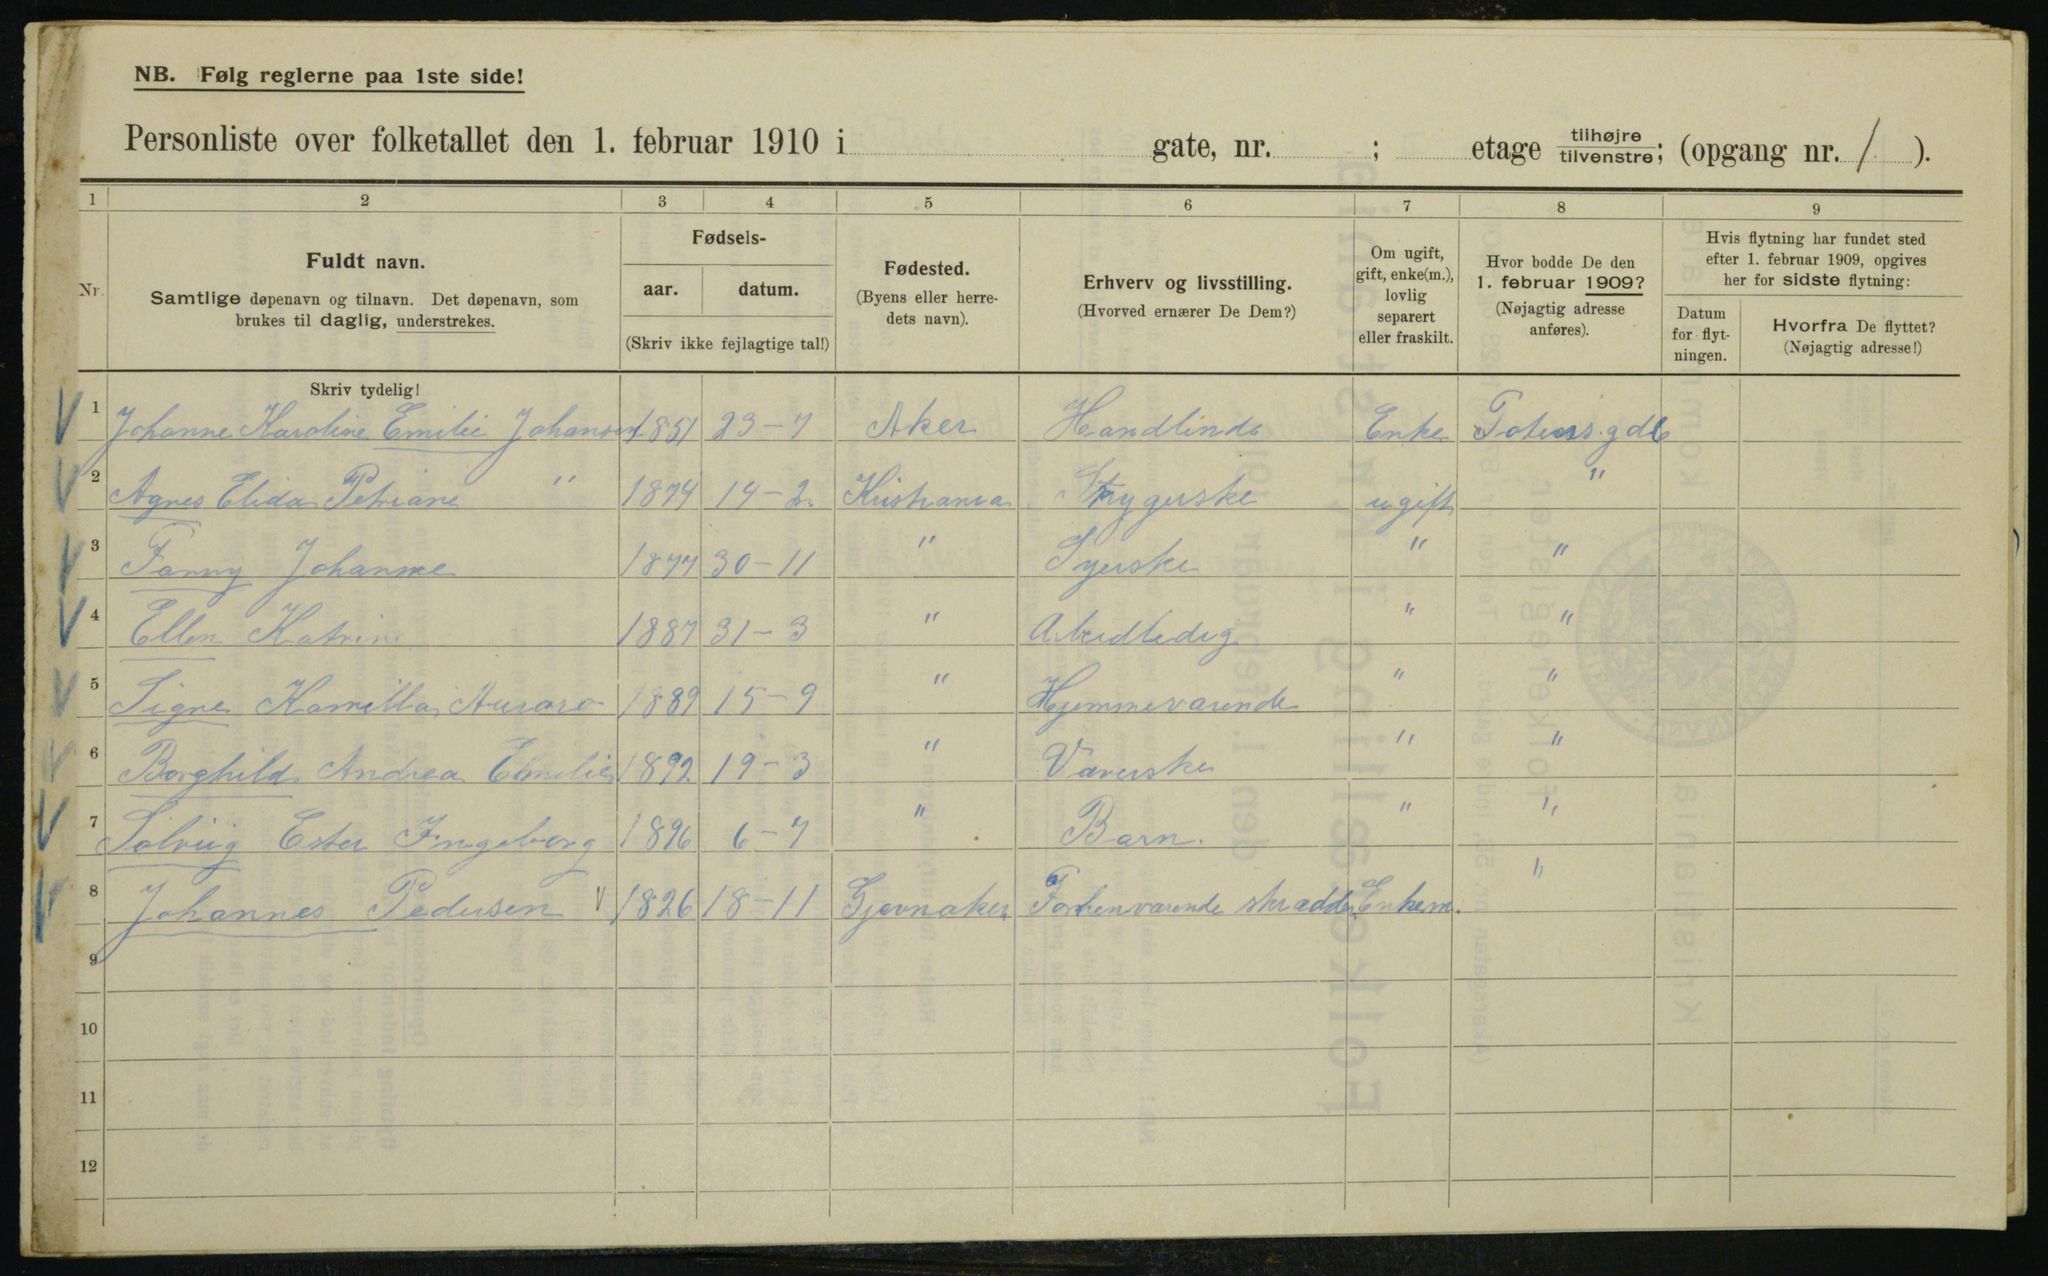 NB. Følg reglerne paa 1ste side!
Personliste over folketallet den 1. februar 1910 i gate, nr. ; etage tilhøjre tilvenstre; (opgang nr. 1 ).
1 2 3 4 5 6 7 8 9
Nr. Fuldt navn. Samtlige døpenavn og tilnavn. Det døpenavn, som brukes til daglig, understrekes.
Fødsels- aar. datum. (Skriv ikke fejlagtige tal!)
Fødested. (Byens eller herredets navn).
Erhverv og livsstilling. (Hvorved ernærer De Dem?)
Om ugift, gift, enke(m.), lovlig separert eller fraskilt.
Hvor bodde De den 1. februar 1909? (Nøjagtig adresse anføres).
Hvis flytning har fundet sted efter 1. februar 1909, opgives her for sidste flytning:
Datum for flytningen. Hvorfra De flyttet? (Nøjagtig adresse!)
Skriv tydelig!
1 Johanne Karoline Emilie Johansen 1851 23-7 Aker Handlinde Enke
2 Agnes Elida Petriane " 1874 14-2 Kristiania Strygerske ugift "
3 Fanny Johanne 1877 30-11 " Syerske " "
4 Ellen Katrine 1887 31-3 " Arbeidledig " "
5 Signe Kamilla Aurora 1889 15-9 " Hjemmeværende " "
6 Borghild Andrea Emilie 1892 19-3 " Væverske " "
7 Solveig Ester Ingeborg 1896 6-7 " Barn. " "
8 Johannes Pedersen 1826 18-11 Gjevnaker Forhenværende skrædder Enkem. "
9
10
11
12